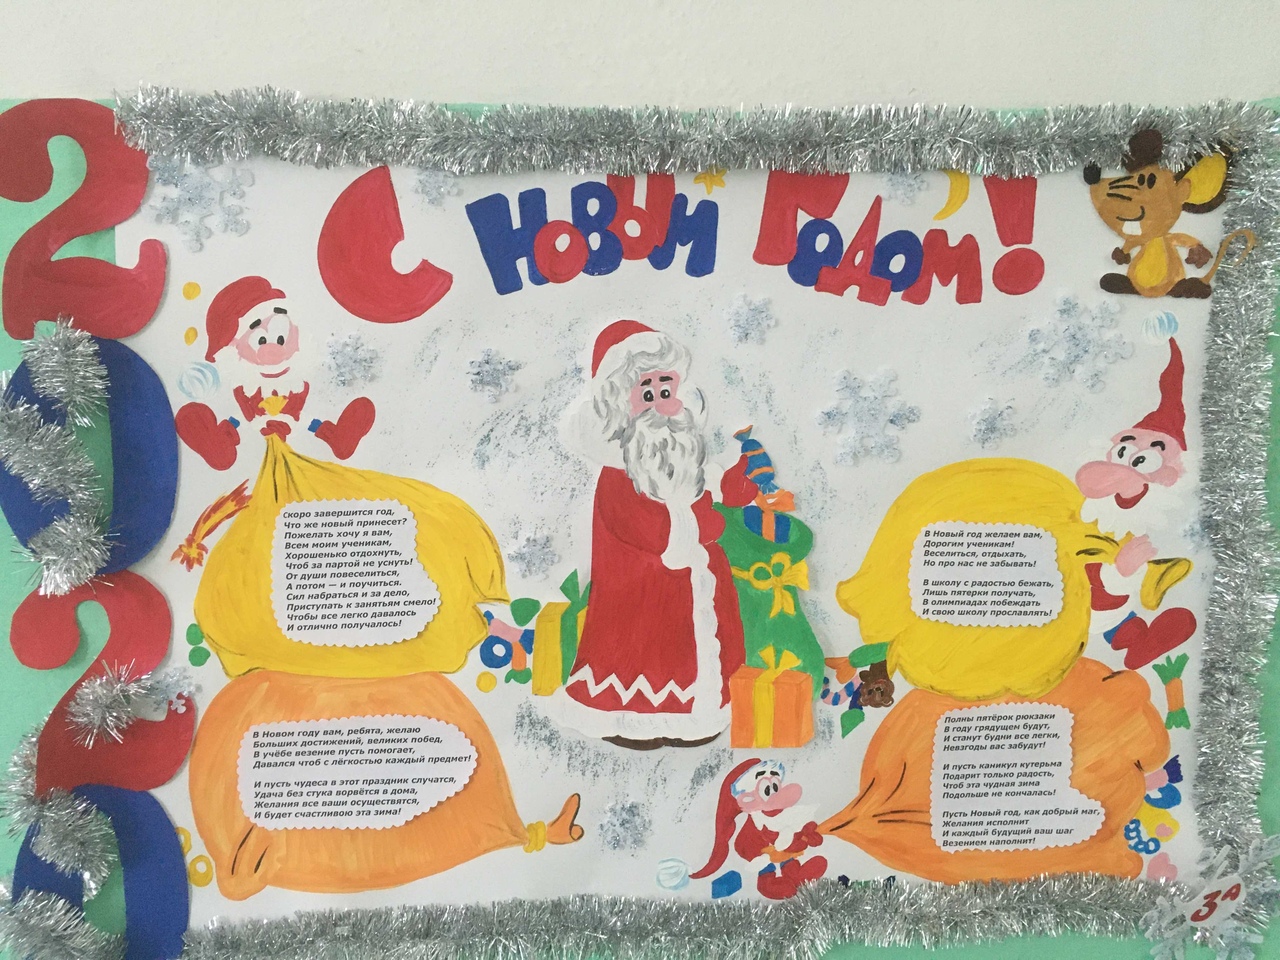 2020
С Новым Годом!
Скоро завершится год,
Что же новый принесет?
Пожелать хочу я вам,
Всем моим ученикам,
Хорошенько отдохнуть,
Чтоб за партой не уснуть!
От души повеселиться,
А потом — и поучиться.
Сил набраться и за дело,
Приступать к занятьям смело!
Чтобы все легко давалось
И отлично получалось!
В Новый год желаем вам,
Дорогим ученикам!
Веселиться, отдыхать,
Но про нас не забывать!
В школу с радостью бежать,
Лишь пятерки получать,
В олимпиадах побеждать
И свою школу прославлять!
В Новом году вам, ребята, желаю
Больших достижений, великих побед,
В учёбе везение пусть помогает,
Давался чтоб с лёгкостью каждый предмет!
И пусть чудеса в этот праздник случатся,
Удача без стука ворвётся в дома,
Желания все ваши осуществятся,
И будет счастливою эта зима!
Полны пятёрок рюкзаки
В году грядущем будут,
И станут будни все легки,
Невзгоды вас забудут!
И пусть каникул кутерьма
Подарит только радость,
Чтоб эта чудная зима
Подольше не кончалась!
Пусть Новый год, как добрый маг,
Желания исполнит
И каждый будущий ваш шаг
Везением наполнит!
3А